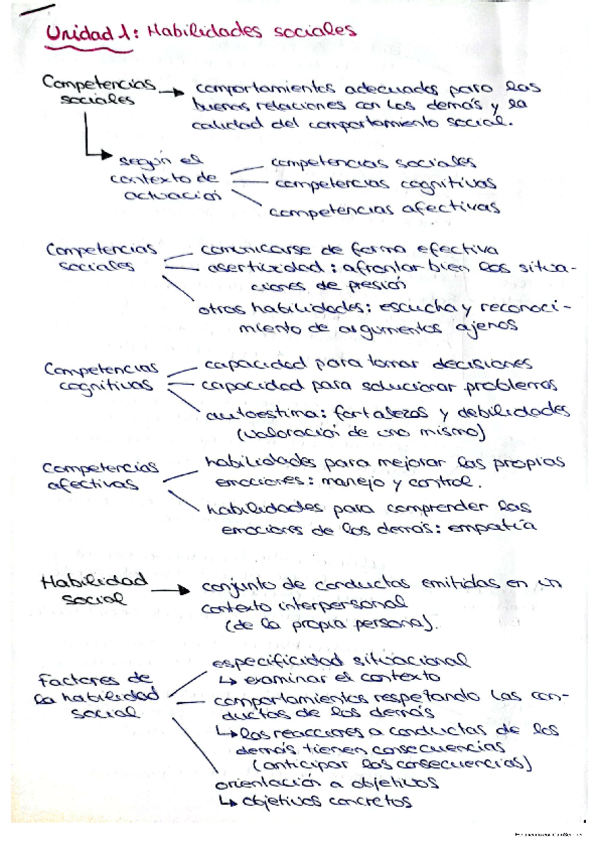 Unidad 1: Habilidades sociales
Competencias sociales → comportamientos adecuados para las
buenas relaciones con los demás y la
calidad del comportamiento social.
según el contexto de actuación
competencias sociales
competencias cognitivas
competencias afectivas
Competencias sociales
comunicarse de forma efectiva
asertividad: afrontar bien las situa-
ciones de presión
otras habilidades: escucha y reconoci-
miento de argumentos ajenos
Competencias cognitivas
capacidad para tomar decisiones
capacidad para solucionar problemas
autoestima: fortalezas y debilidades
(valoración de uno mismo)
Competencias afectivas
habilidades para mejorar las propias
emociones: manejo y control.
habilidades para comprender las
emociones de los demás: empatía
Habilidad social → conjunto de conductas emitidas en un
contexto interpersonal
(de la propia persona).
Factores de la habilidad social
especificidad situacional
↳ examinar el contexto
comportamientos respetando las con-
ductas de los demás
↳ las reacciones a conductas de los
demás tienen consecuencias
(anticipar las consecuencias)
orientación a objetivos
↳ objetivos concretos